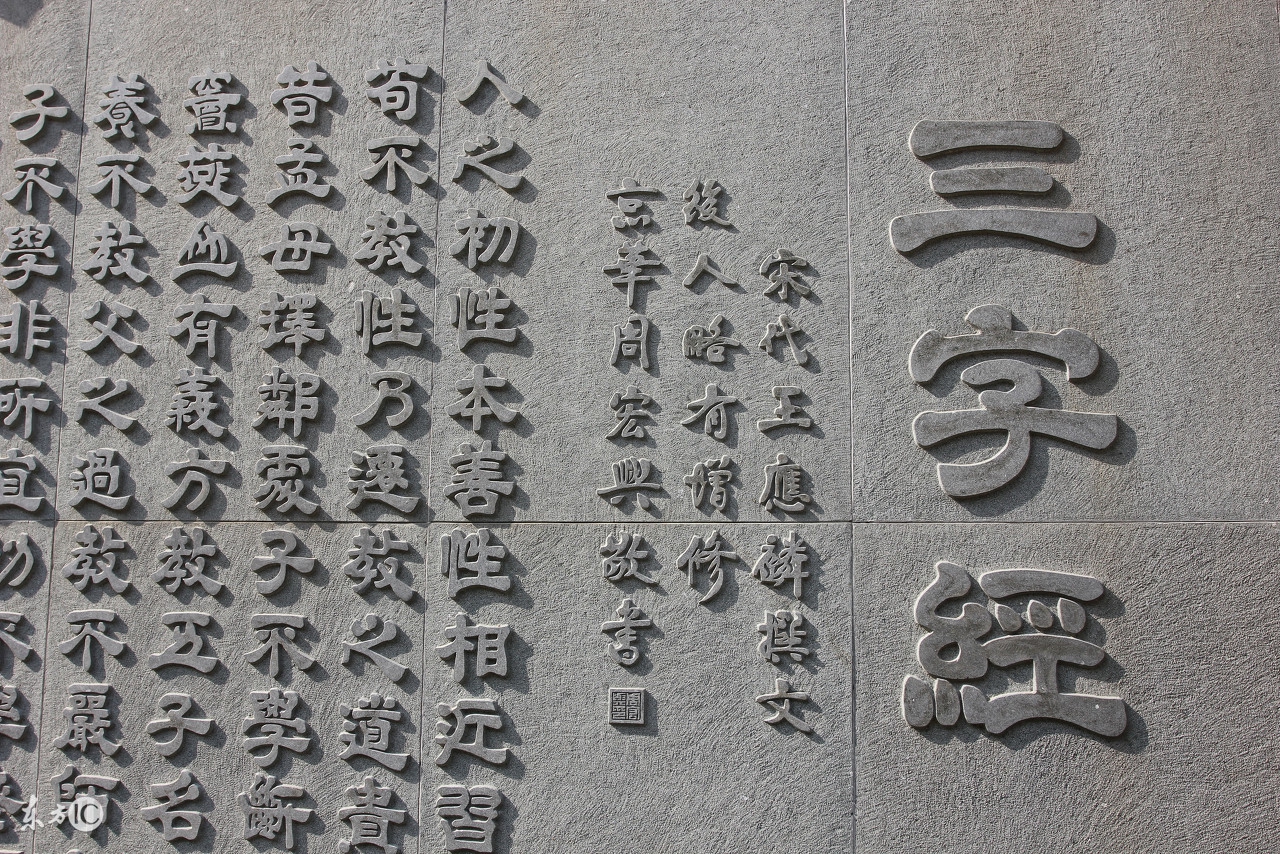 三字經
宋代王應磷撰文
後人略有增修
京華周宏興敬書
人之初性本善性相近習
苟不教性乃遷教之道貴
昔孟母擇鄰處子不學斷
竇燕山有義方教五子名
養不教父之過教不嚴師
子不學非所宜幼不學
东方IC